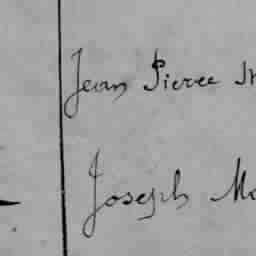 Jean Pierre
Joseph